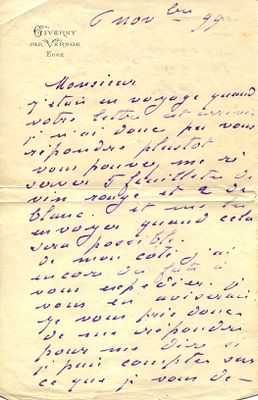 GIVERNY
PAR VERNON
EURE
6 novbre 99
Monsieur
j'etais en voyage quand
votre lettre est arrivée
j n'ai donc pu vous
répondre plustot
vous pouvez me ré
server 5 feuillettes de
vin rouge et 2 de
blanc. et me les
envoyer quand cela
sera possible.
de mon coté j'ai
encore du fûts à
vous expedier. j
vous en aviserai.
je vous prie donc
de me répondre
pour me dire si
j puis compter sur
ce que j vous de-